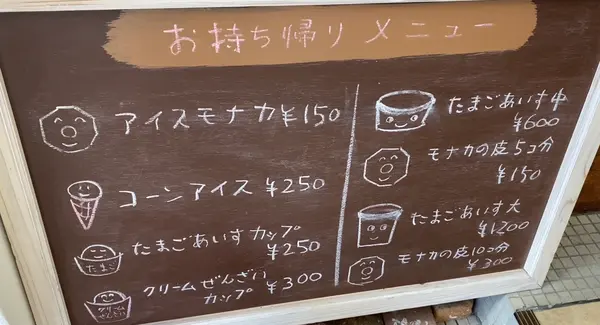 お持ち帰り メニュー
アイスモナカ ¥150
コーンアイス ¥250
たまごあいす カップ
¥250
たまご
クリームぜんざい
カップ ¥300
クリーム
ぜんざい
たまごあいす中
¥600
モナカの皮 5コ分
¥150
たまごあいす大
¥1200
モナカの皮10コ分
¥300